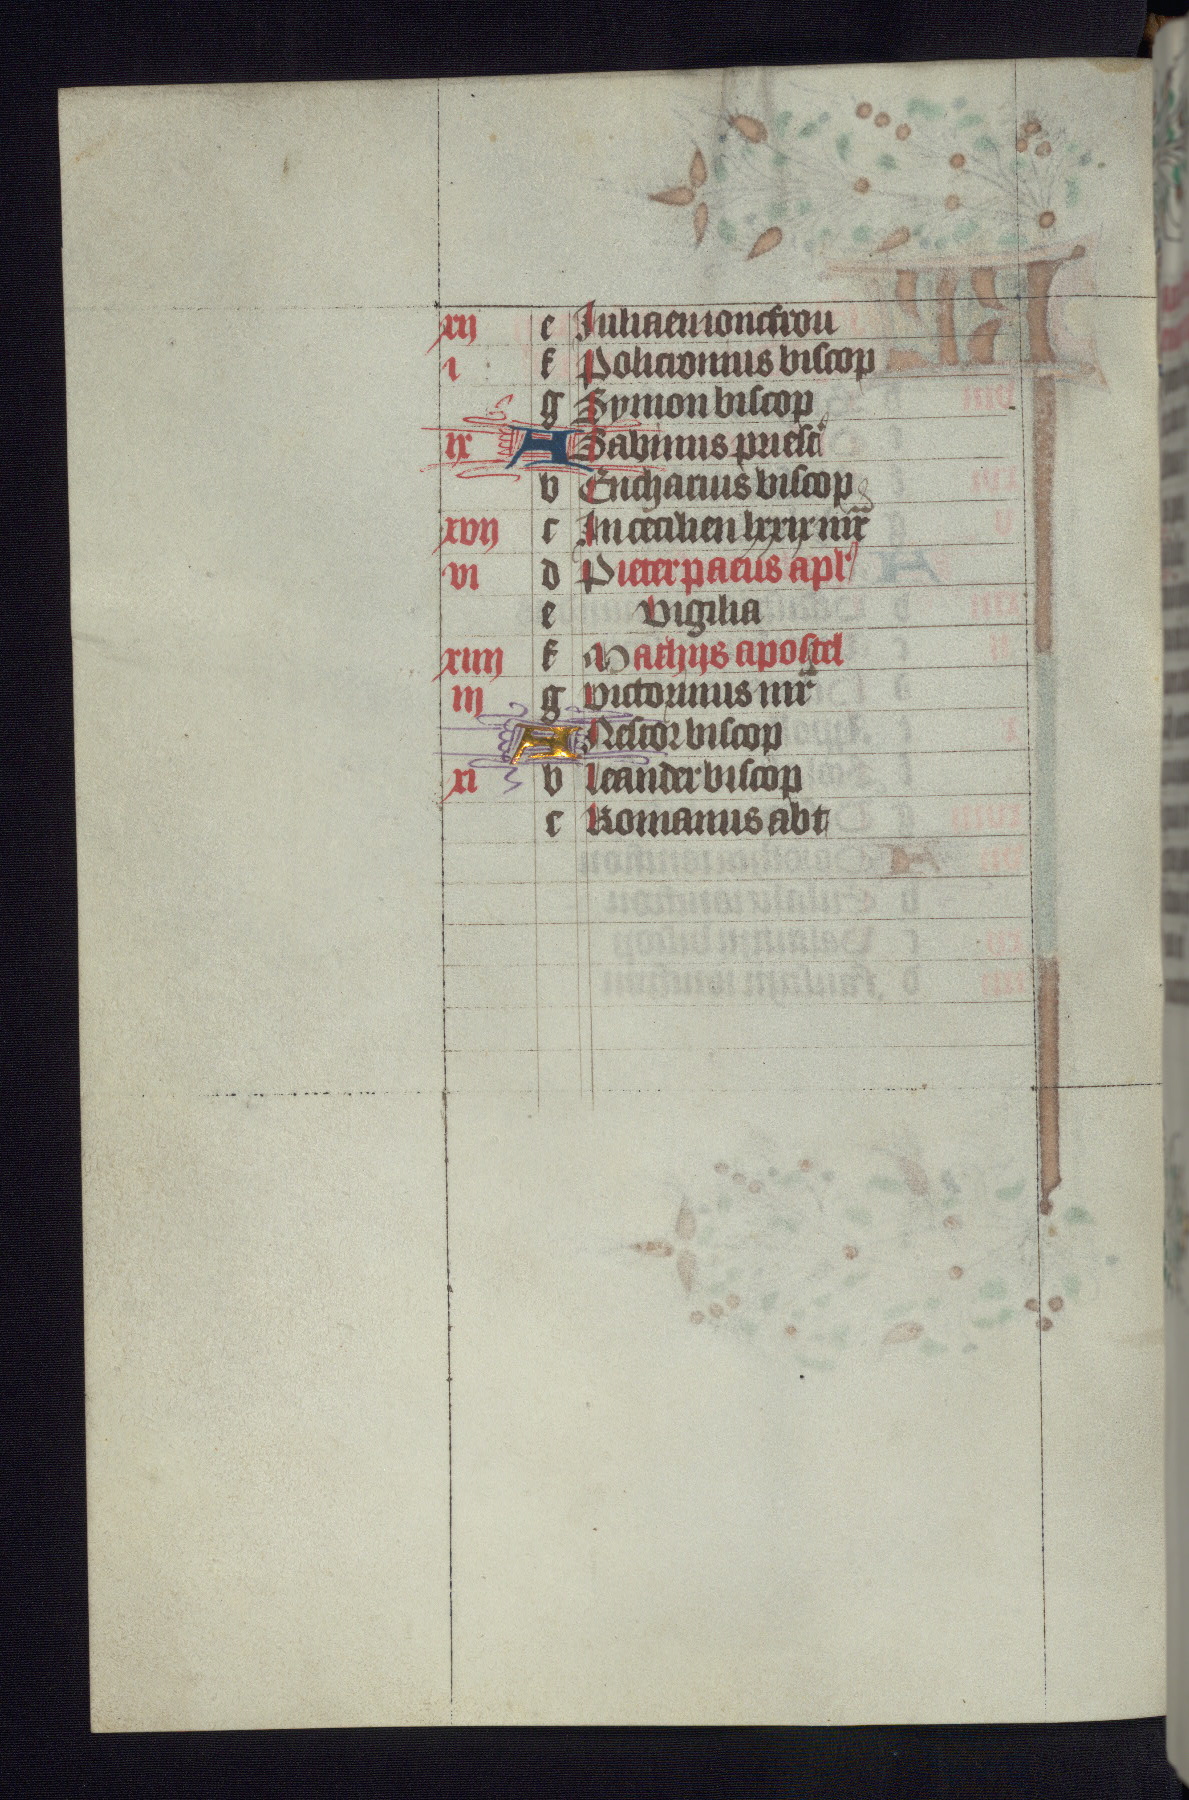 xij e Juliaen ioncfrou
i f Policromus biscop
g Symon biscop
ix A Sabinus priest
b Eucharius biscop
xvij c In cecilien lxxix mr
vi d Pieter paeus apl
e Vigilia
xiiij f Mathijs apostel
iij g Victorinus mr
A Nestor biscop
xi b Leander biscop
c Romanus abt